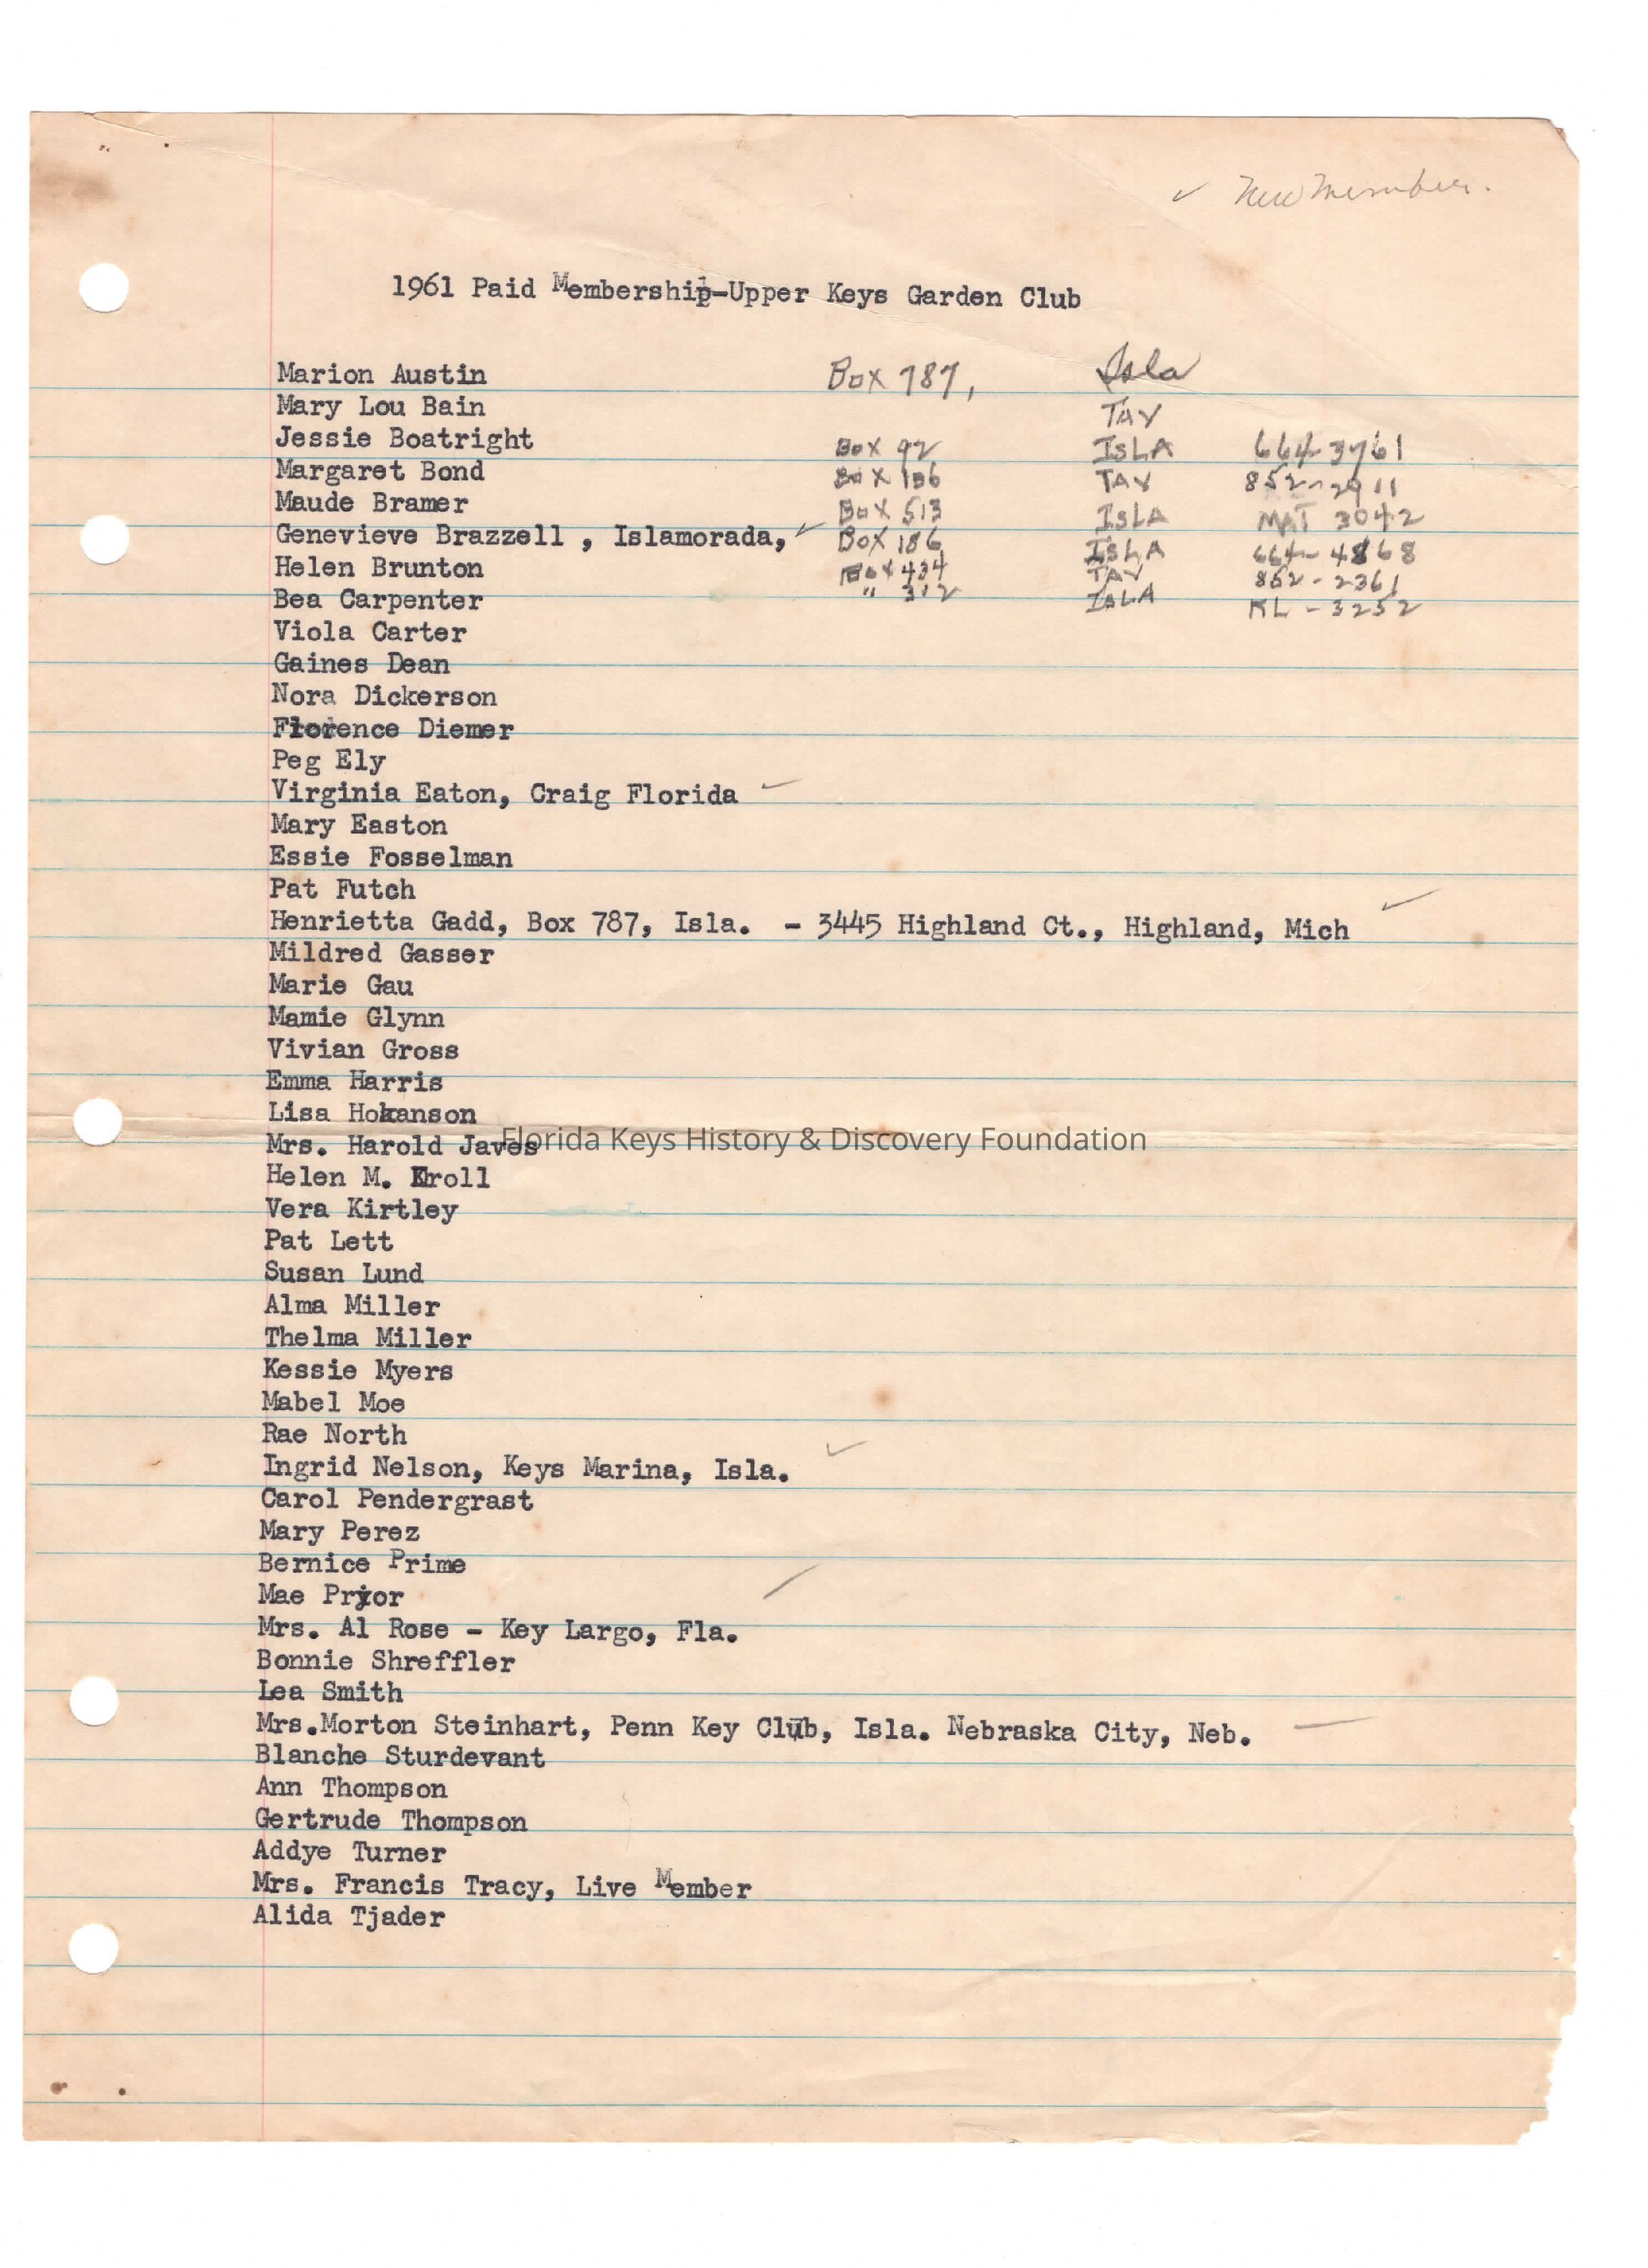 ✓ New Member.
1961 Paid Membership-Upper Keys Garden Club
Marion Austin Box 787, Isla
Mary Lou Bain TAV
Jessie Boatright Box 92 ISLA 664-3761
Margaret Bond Box 186 TAV 852-2911
Maude Bramer Box 513 ISLA MAT 3042
Genevieve Brazzell , Islamorada, ✓ Box 186 ISLA 664-4868
Helen Brunton Box 434 TAV 852-2361
Bea Carpenter " 312 ISLA KL-3252
Viola Carter
Gaines Dean
Nora Dickerson
Florence Diemer
Peg Ely
Virginia Eaton, Craig Florida ✓
Mary Easton
Essie Fosselman
Pat Futch
Henrietta Gadd, Box 787, Isla. - 3445 Highland Ct., Highland, Mich ✓
Mildred Gasser
Marie Gau
Mamie Glynn
Vivian Gross
Emma Harris
Lisa Hokanson
Florida Keys History & Discovery Foundation
Mrs. Harold Javes
Helen M. Kroll
Vera Kirtley
Pat Lett
Susan Lund
Alma Miller
Thelma Miller
Kessie Myers
Mabel Moe
Rae North
Ingrid Nelson, Keys Marina, Isla. ✓
Carol Pendergrast
Mary Perez
Bernice Prime
Mae Pryor
Mrs. Al Rose - Key Largo, Fla.
Bonnie Shreffler
Lea Smith
Mrs.Morton Steinhart, Penn Key Club, Isla. Nebraska City, Neb.
Blanche Sturdevant
Ann Thompson
Gertrude Thompson
Addye Turner
Mrs. Francis Tracy, Live Member
Alida Tjader